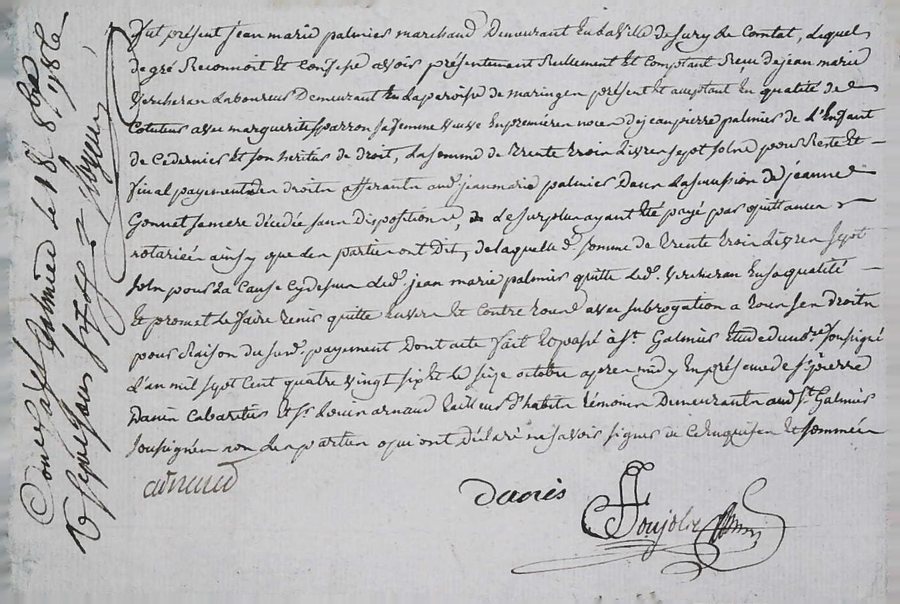 fut présent jean marie palmier marchand Demeurant en la ville de sury le Comtat, lequel
de gré Reconnoit Et Confesse avoir présentement Reellement Et Comptant Reçu de jean marie
vercheran Laboureur Demeurant En la paroisse de maringen présent Et aceptant En qualité de
Cotuteur avec margueritte parron sa femme veuve En premières noces de jean pierre palmier de L'Enfant
de Ce dernier Et son heritier de droit, La somme de trente trois Livres sept sols pour Reste Et
final payement des droits afferants aud. jean marie palmier Dans La succession de jeanne
Gonnet sa mere décédée sans Disposition, Le surplus ayant Eté payé par quittances
notariées ainsy que les parties ont Dit, de laquelle d. somme de trente trois Livres sept
sols pour La Cause Cy dessus led. jean marie palmier quitte led. vercheran En sa qualité
Et promet Le faire tenir quitte Envers Et Contre tous avec subrogation a tous ses droits
pour Raison du sud. payement Dont acte fait Et passé à St. Galmier Etude du nre. soussigné
L'an mil sept Cent quatre vingt six Et le seize octobre apres midy En présence de sr. pierre
Danis Cabaretier Et sr. Louis arnaud tailleur d'habits témoins Demeurants aud. St. Galmier
soussignés non les parties qui ont déclaré ne savoir signer de Ce Enquises Et sommées
arnaud
Danis
Controllé à St Galmier le 18 8bre 1786